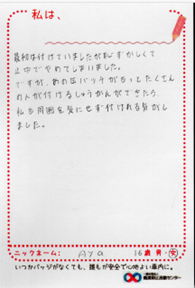 私は、
最初は付けていましたが恥ずかしくて
止中でやめてしまいました。
ですが、あの缶バッヂがもっとたくさん
の人が付けるしゅうかんができたら、
私も周囲を気にせず付けれる気がし
ました。
ニックネーム: Aya 16歳 男・女
いつかバッジがなくても、誰もが安全で心地よい車内に。